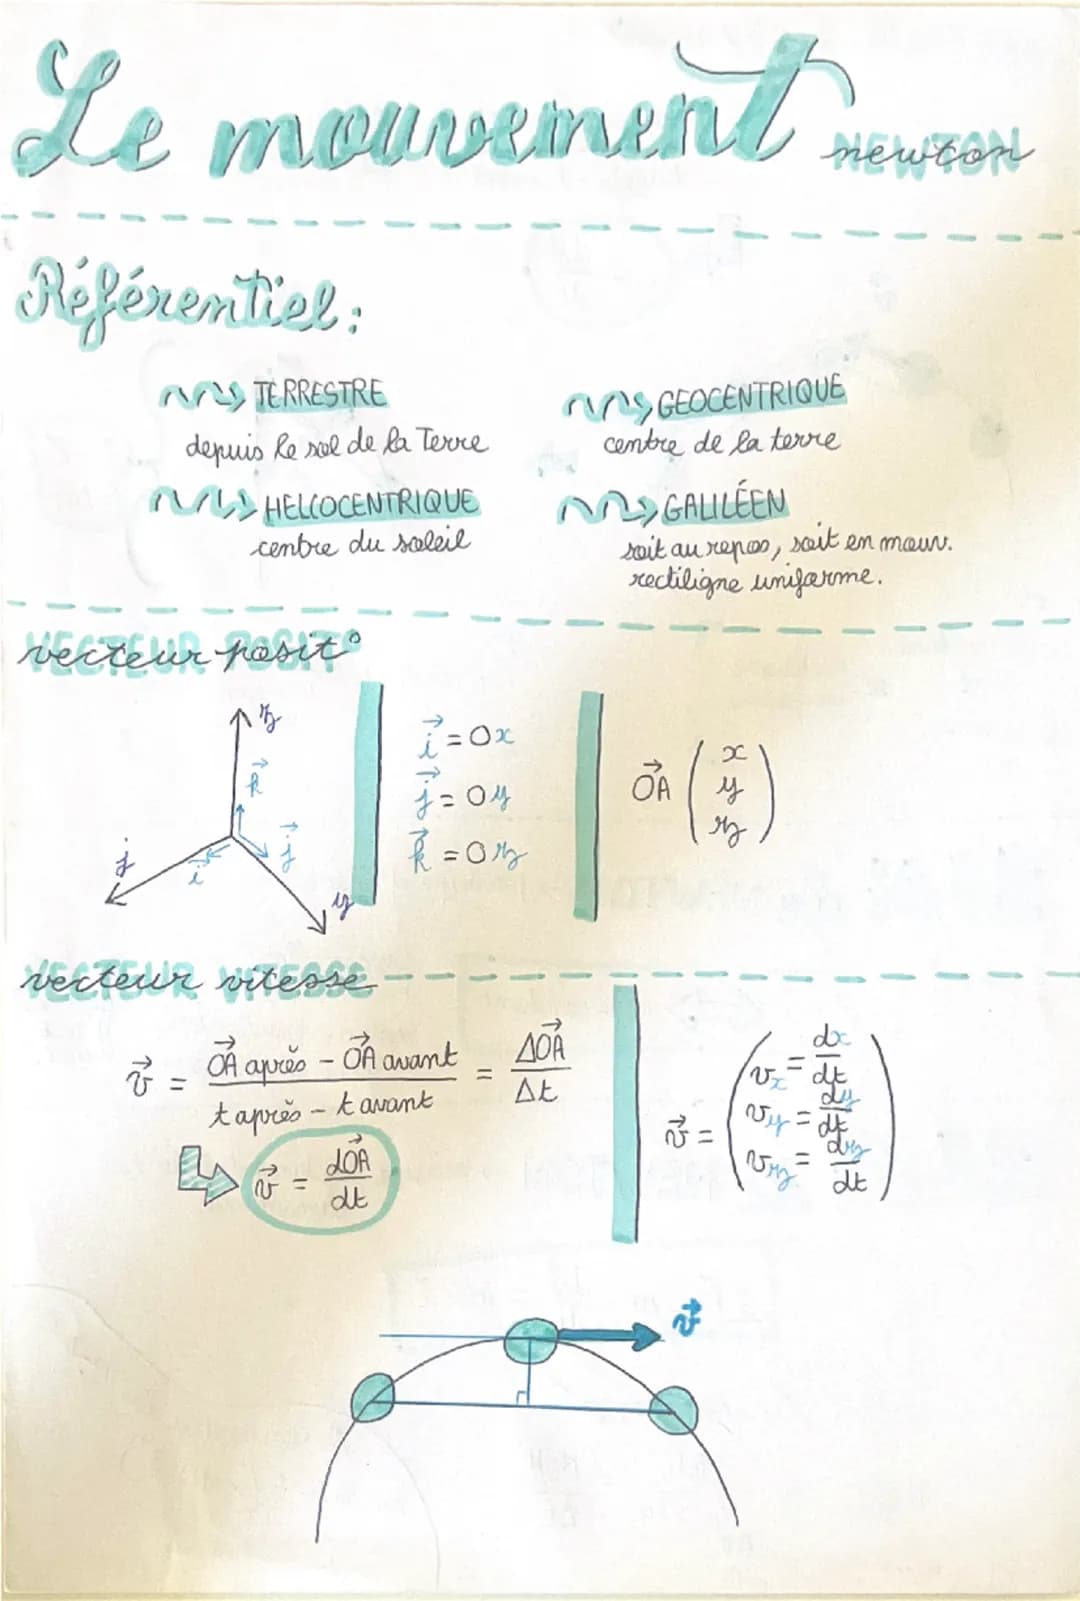 Le mouvement newton
NEWTON
Référentiel :
TERRESTRE
depuis le sol de la Terre
GEOCENTRIQUE
centre de la terre
HELIOCENTRIQUE
centre du soleil
GALILÉEN
soit au repos, soit en mouv.
rectiligne uniforme.
vecteur posit°
VECTEUR POSIT°
z
k⃗
j
i⃗
j⃗
y
i⃗ = Ox
j⃗ = Oy
k⃗ = Oz
OA⃗ ( x
y
z )
vecteur vitesse
VECTEUR VITESSE
v⃗ = (OA⃗ après - OA⃗ avant) / (t après - t avant) = ΔOA⃗ / Δt
v⃗ = dOA⃗ / dt
v⃗ = ( vx = dx/dt
vy = dy/dt
vz = dz/dt )
v⃗